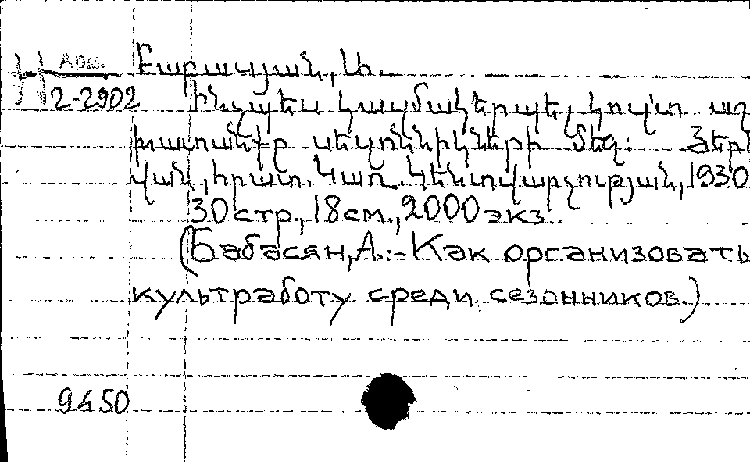 Н Арм. Բաբասյան, Ա.
2-2902 Ինչպես կազմակերպել կուլտ աշ
խատանքը սեզոնիկների մեջ։ Յերե
վան, հրատ. Կառ. Կենտվարչության, 1930
30 стр., 18 см., 2000 экз.
(Бабасян, А.:- Как организовать
культработу среди сезонников.)
9450